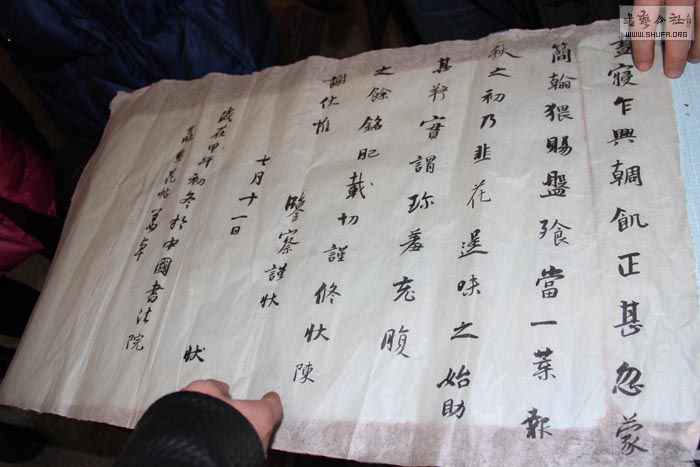 晝寢乍興輖飢正甚忽蒙
簡翰猥賜盤飧當一葉報
秋之初乃韭花逞味之始助
其羜實謂珍羞充腹
之餘銘肌載切謹修狀陳
謝伏惟
鑒察謹狀
七月十一日
狀
歲在甲午初冬於中國書法院
臨韭花帖 葛卓
書藝公社
WWW.SHUFA.ORG